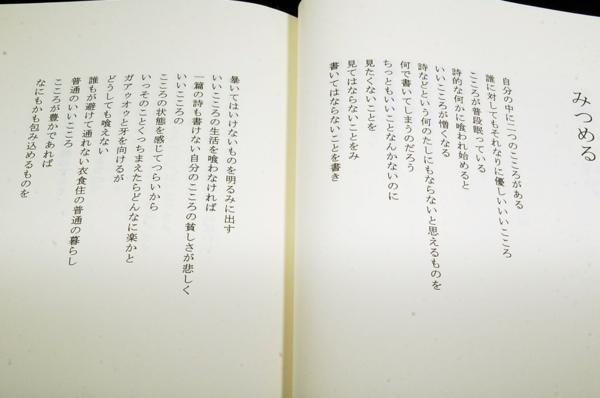 みつめる
自分の中に二つのこころがある
誰に対してもそれなりに優しいいいこころ
こころが普段眠っている
詩的な何かに喰われ始めると
いいこころが憎くなる
詩などという何のたしにもならないと思えるものを
何で書いてしまうのだろう
ちっともいいことなんかないのに
見たくないことを
見てはならないことをみ
書いてはならないことを書き
暴いてはいけないものを明るみに出す
いいこころの生活を喰わなければ
一篇の詩も書けない自分のこころの貧しさが悲しく
いいこころの
こころの状態を感じてつらいから
いっそのことくっちまえたらどんなに楽かと
ガアゥオゥと牙を向けるが
どうしても喰えない
誰もが避けて通れない衣食住の普通の暮らし
普通のいいこころ
こころが豊かであれば
なにもかも包み込めるものを